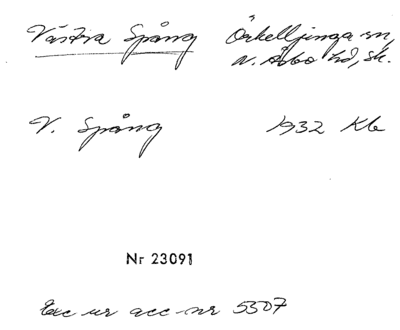 Västra Spång Örkelljunga sn,
N. Åsbo hd, Sk.
V. Spång 1932 Kle
Nr 23091
Exc ur acc nr 5307